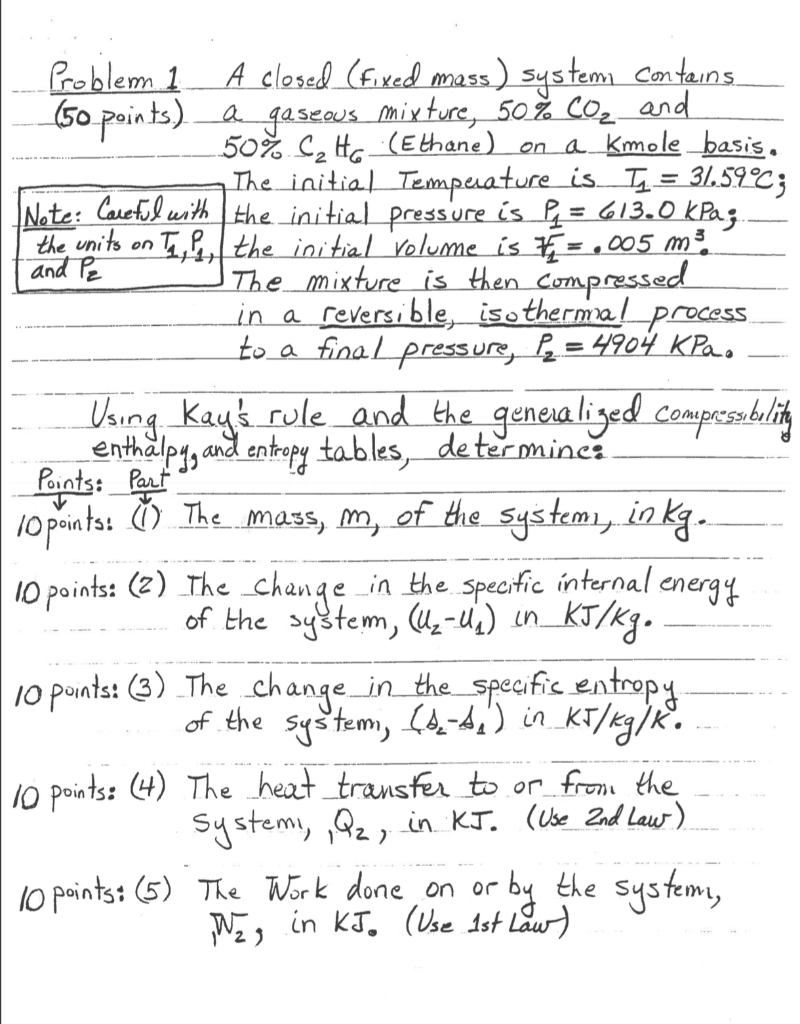 Problem 1 A closed (fixed mass) system contains
(50 points) a gaseous mixture, 50% CO₂ and
50% C₂H₆ (Ethane) on a Kmole basis.
The initial Tempeature is T₁ = 31.59°C;
Note: Careful with the initial pressure is P₁ = 613.0 kPa;
the units on T₁, P₁, the initial volume is V₁ = .005 m³.
and P₂ The mixture is then compressed
in a reversible, isothermal process
to a final pressure, P₂ = 4904 KPa.
Using Kay's rule and the generalized compressibility
enthalpy, and entropy tables, determine:
Points: Part
10 points: (1) The mass, m, of the system, in kg.
10 points: (2) The change in the specific internal energy
of the system, (u₂-u₁) in KJ/Kg.
10 points: (3) The change in the specific entropy
of the system, (s₂-s₁) in KJ/kg/K.
10 points: (4) The heat transfer to or from the
system, ₁Q₂, in KJ. (Use 2nd Law)
10 points: (5) The Work done on or by the system,
₁W₂, in KJ. (Use 1st Law)